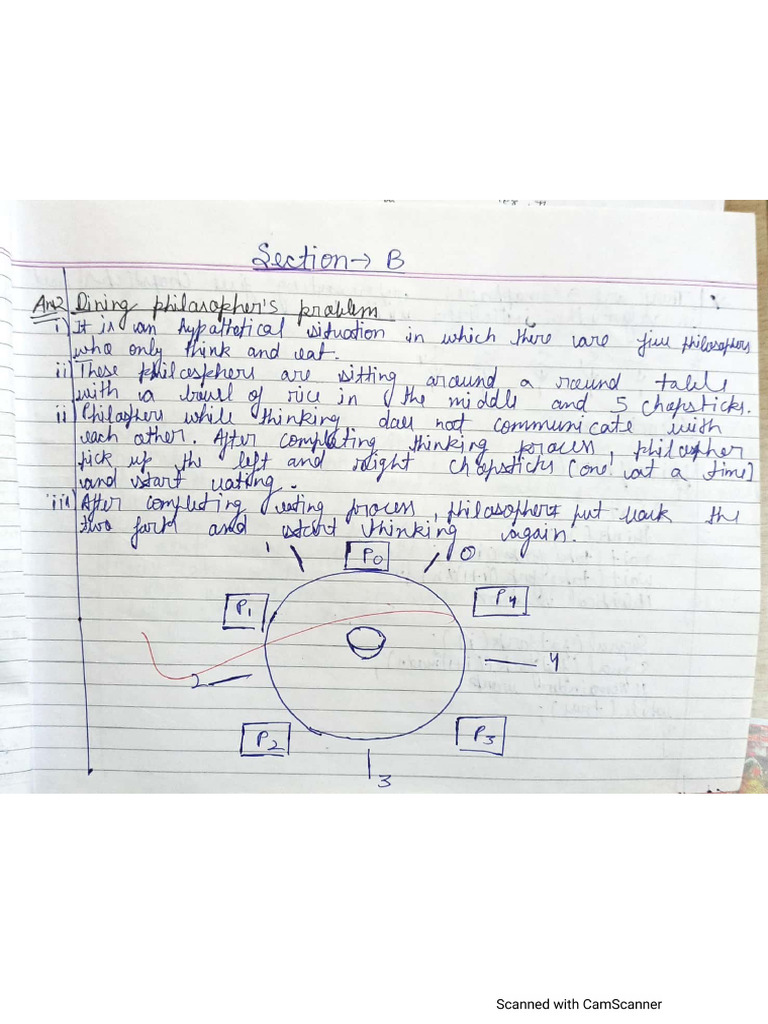 Section → B
Ans2 Dining philosapher's problem
i) It is an hypathetical situation in which there are five philosaphers
who only think and eat.
ii) These philosphers are sitting around a round table
with a bowl of rice in the middle and 5 chopsticks.
ii) Philosphers while thinking does not communicate with
each other. After completing thinking process, philospher
pick up the left and right chopsticks (one at a time)
and start eating.
iii) After completing eating process, philosophers put back the
two fork and start thinking again.
1 P0 0
P1 P4
2 4
P2 P3
3
Scanned with CamScanner